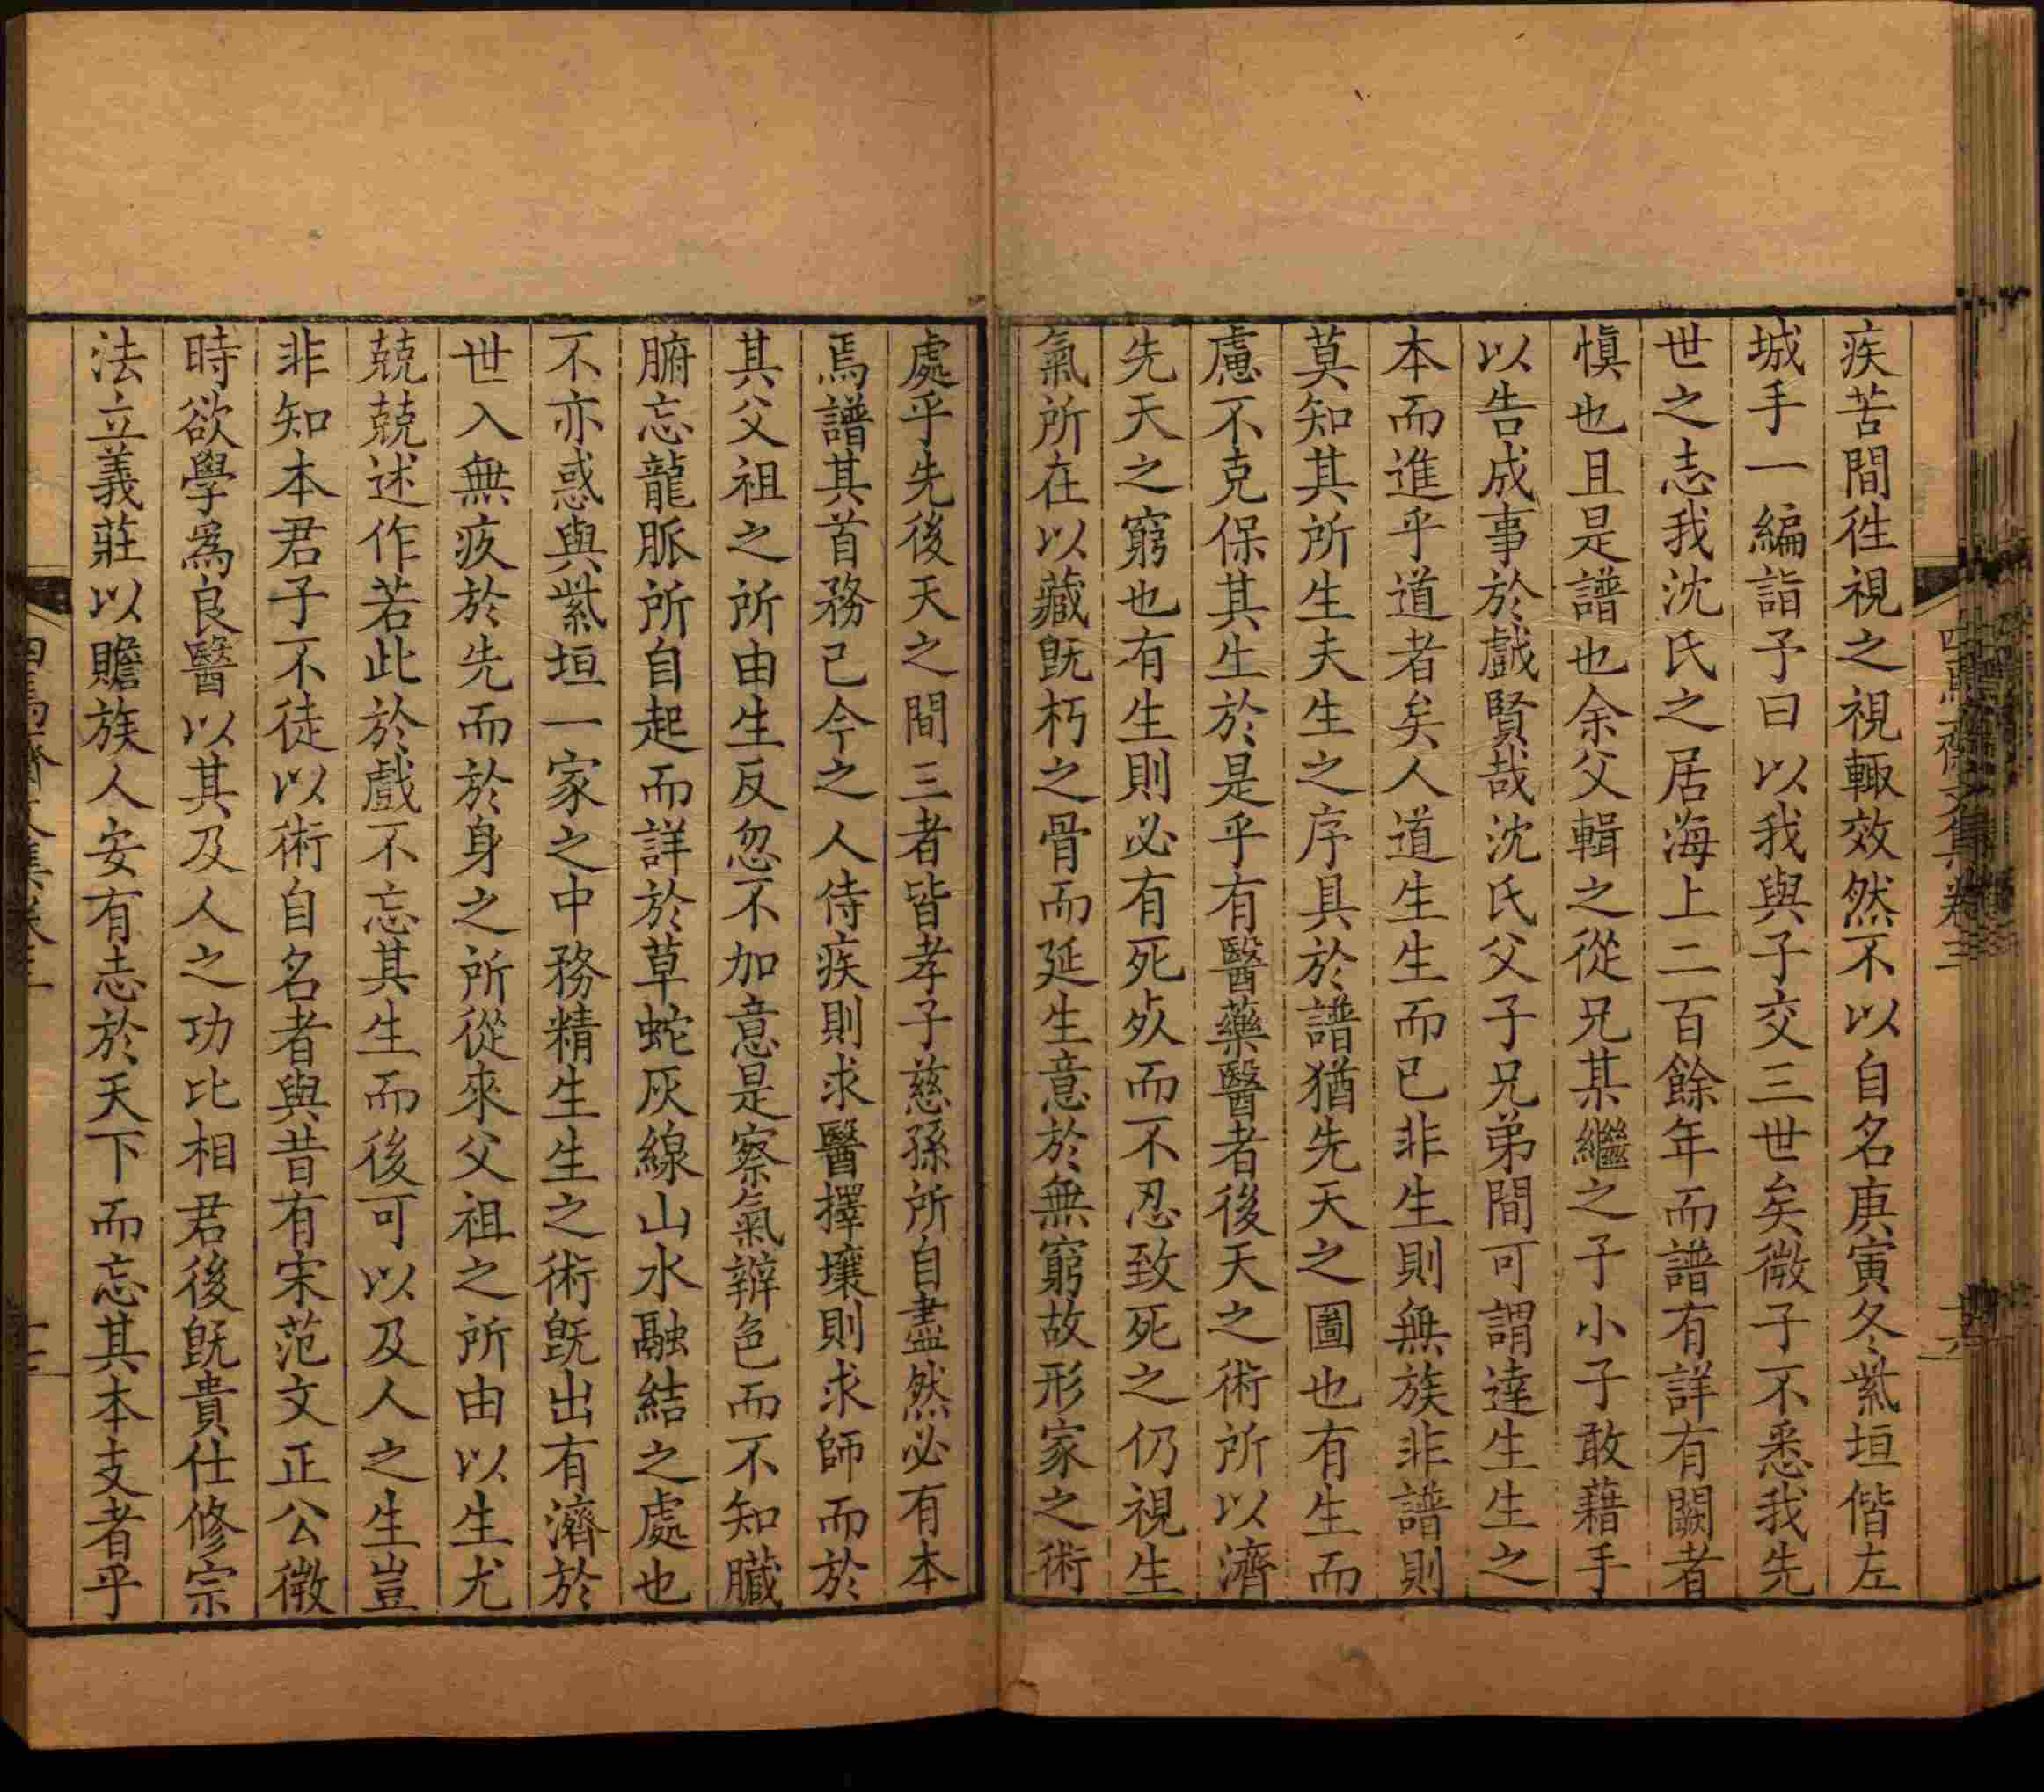 疾苦間徃視之視輙效然不以自名庚寅冬紫垣偕左
城手一編詣予曰以我與子交三世矣微子不悉我先
世之志我沈氏之居海上二百餘年而譜有詳有闕者
愼也且是譜也余父輯之從兄某繼之予小子敢藉手
以告成事於戲賢哉沈氏父子兄弟間可謂達生生之
本而進乎道者矣人道生生而已非生則無族非譜則
莫知其所生夫生之序具於譜猶先天之圖也有生而
慮不克保其生於是乎有醫藥醫者後天之術所以濟
先天之窮也有生則必有死㱕而不忍致死之仍視生
氣所在以藏旣朽之骨而延生意於無窮故形家之術
處乎先後天之間三者皆孝子慈孫所自盡然必有本
焉譜其首務已今之人侍疾則求醫擇壤則求師而於
其父祖之所由生反忽不加意是察氣辨色而不知臟
腑忘龍脈所自起而詳於草蛇灰線山水融結之處也
不亦惑與紫垣一家之中務精生生之術旣出有濟於
世入無疚於先而於身之所從來父祖之所由以生尤
兢兢述作若此於戲不忘其生而後可以及人之生豈
非知本君子不徒以術自名者與昔有宋范文正公微
時欲學爲良醫以其及人之功比相君後旣貴仕修宗
法立義莊以贍族人安有志於天下而忘其本支者乎